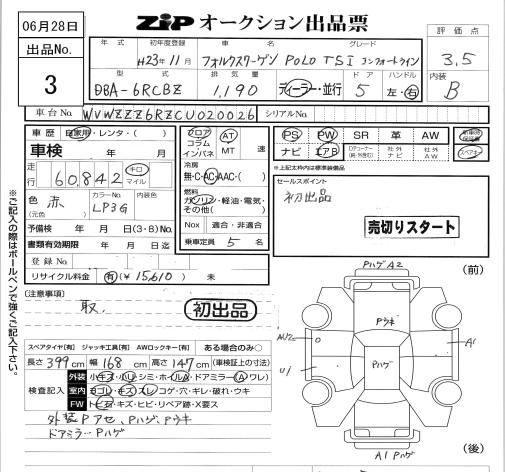 06月28日
ZIP オークション出品票
出品No.
3
年式 初年度登録 車名 グレード
H23年11月 フォルクスワーゲン POLO TSI コンフォートライン
型式 排気量 ドア ハンドル
DBA-6RCBZ 1,190 ディーラー・並行 5 左・右
評価点
3.5
内装
B
車台No. WVWZZZ6RZCU020026 シリアルNo.
車歴 自家用・レンタ・( )
車検 年 月
走行 60,842 キロ マイル
色 赤 カラーNo. LP3G 内装色
(元色)
予備検 年 月 日(3・6)No.
書類有効期限 年 月 日迄
登録No.
リサイクル料金 有(¥ 15,610 ) 未
フロア コラム インパネ AT MT 速
冷房
無・C・AC・AAC・( )
燃料
ガソリン・軽油・電気・その他( )
Nox 適合・非適合
乗車定員 5 名
PS PW SR 革 AW 新車時保証書
ナビ エアB DPコーナー(純・社外含む) 社外ナビ 社外AW スペアキー
※上記太枠内は標準装備品
セールスポイント
初出品
売切りスタート
※ご記入の際はボールペンで強くご記入下さい。
[注意事項]
取、
初出品
スペアタイヤ[有] ジャッキ工具[有] AWロックキー[有] ある場合のみ○
長さ 399 cm 幅 168 cm 高さ 147 cm (車検証上の寸法)
検査記入
外装 小キズ・小U・シミ・ホイールA・ドアミラー(A・ワレ)
室内 ヨゴレ・キズ・スレ・コゲ・穴・ギレ・破れ・ウキ
FW トビ石・キズ・ヒビ・リペア跡・X要ス
外装Pアセ、Pハゲ、Pウキ
ドアミラーPハゲ
(前)
PハゲA2
Pウキ
Pハゲ
A1
U1
A1 Pハゲ
(後)